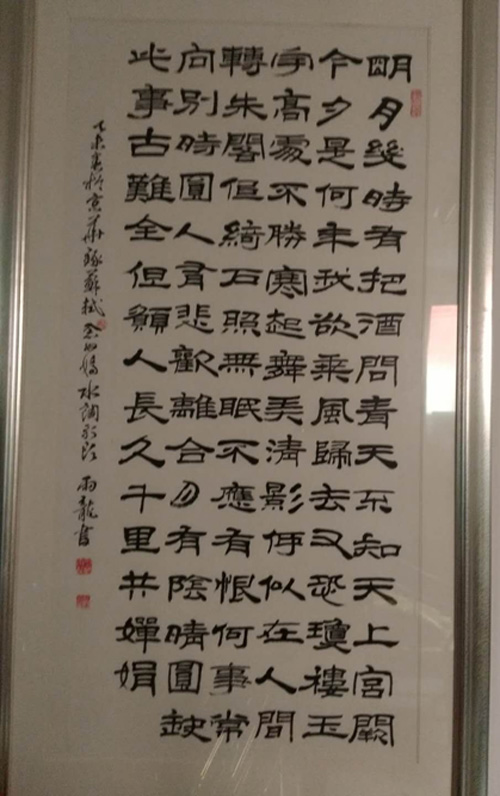 明月幾時有把酒問青天不知天上宮闕
今夕是何年我欲乘風歸去又恐瓊樓玉
宇高處不勝寒起舞弄清影何似在人間
轉朱閣低綺戶照無眠不應有恨何事常
向別時圓人有悲歡離合月有陰晴圓缺
此事古難全但願人長久千里共嬋娟
乙未春於京華錄蘇軾念奴嬌水調歌頭 雨龍書